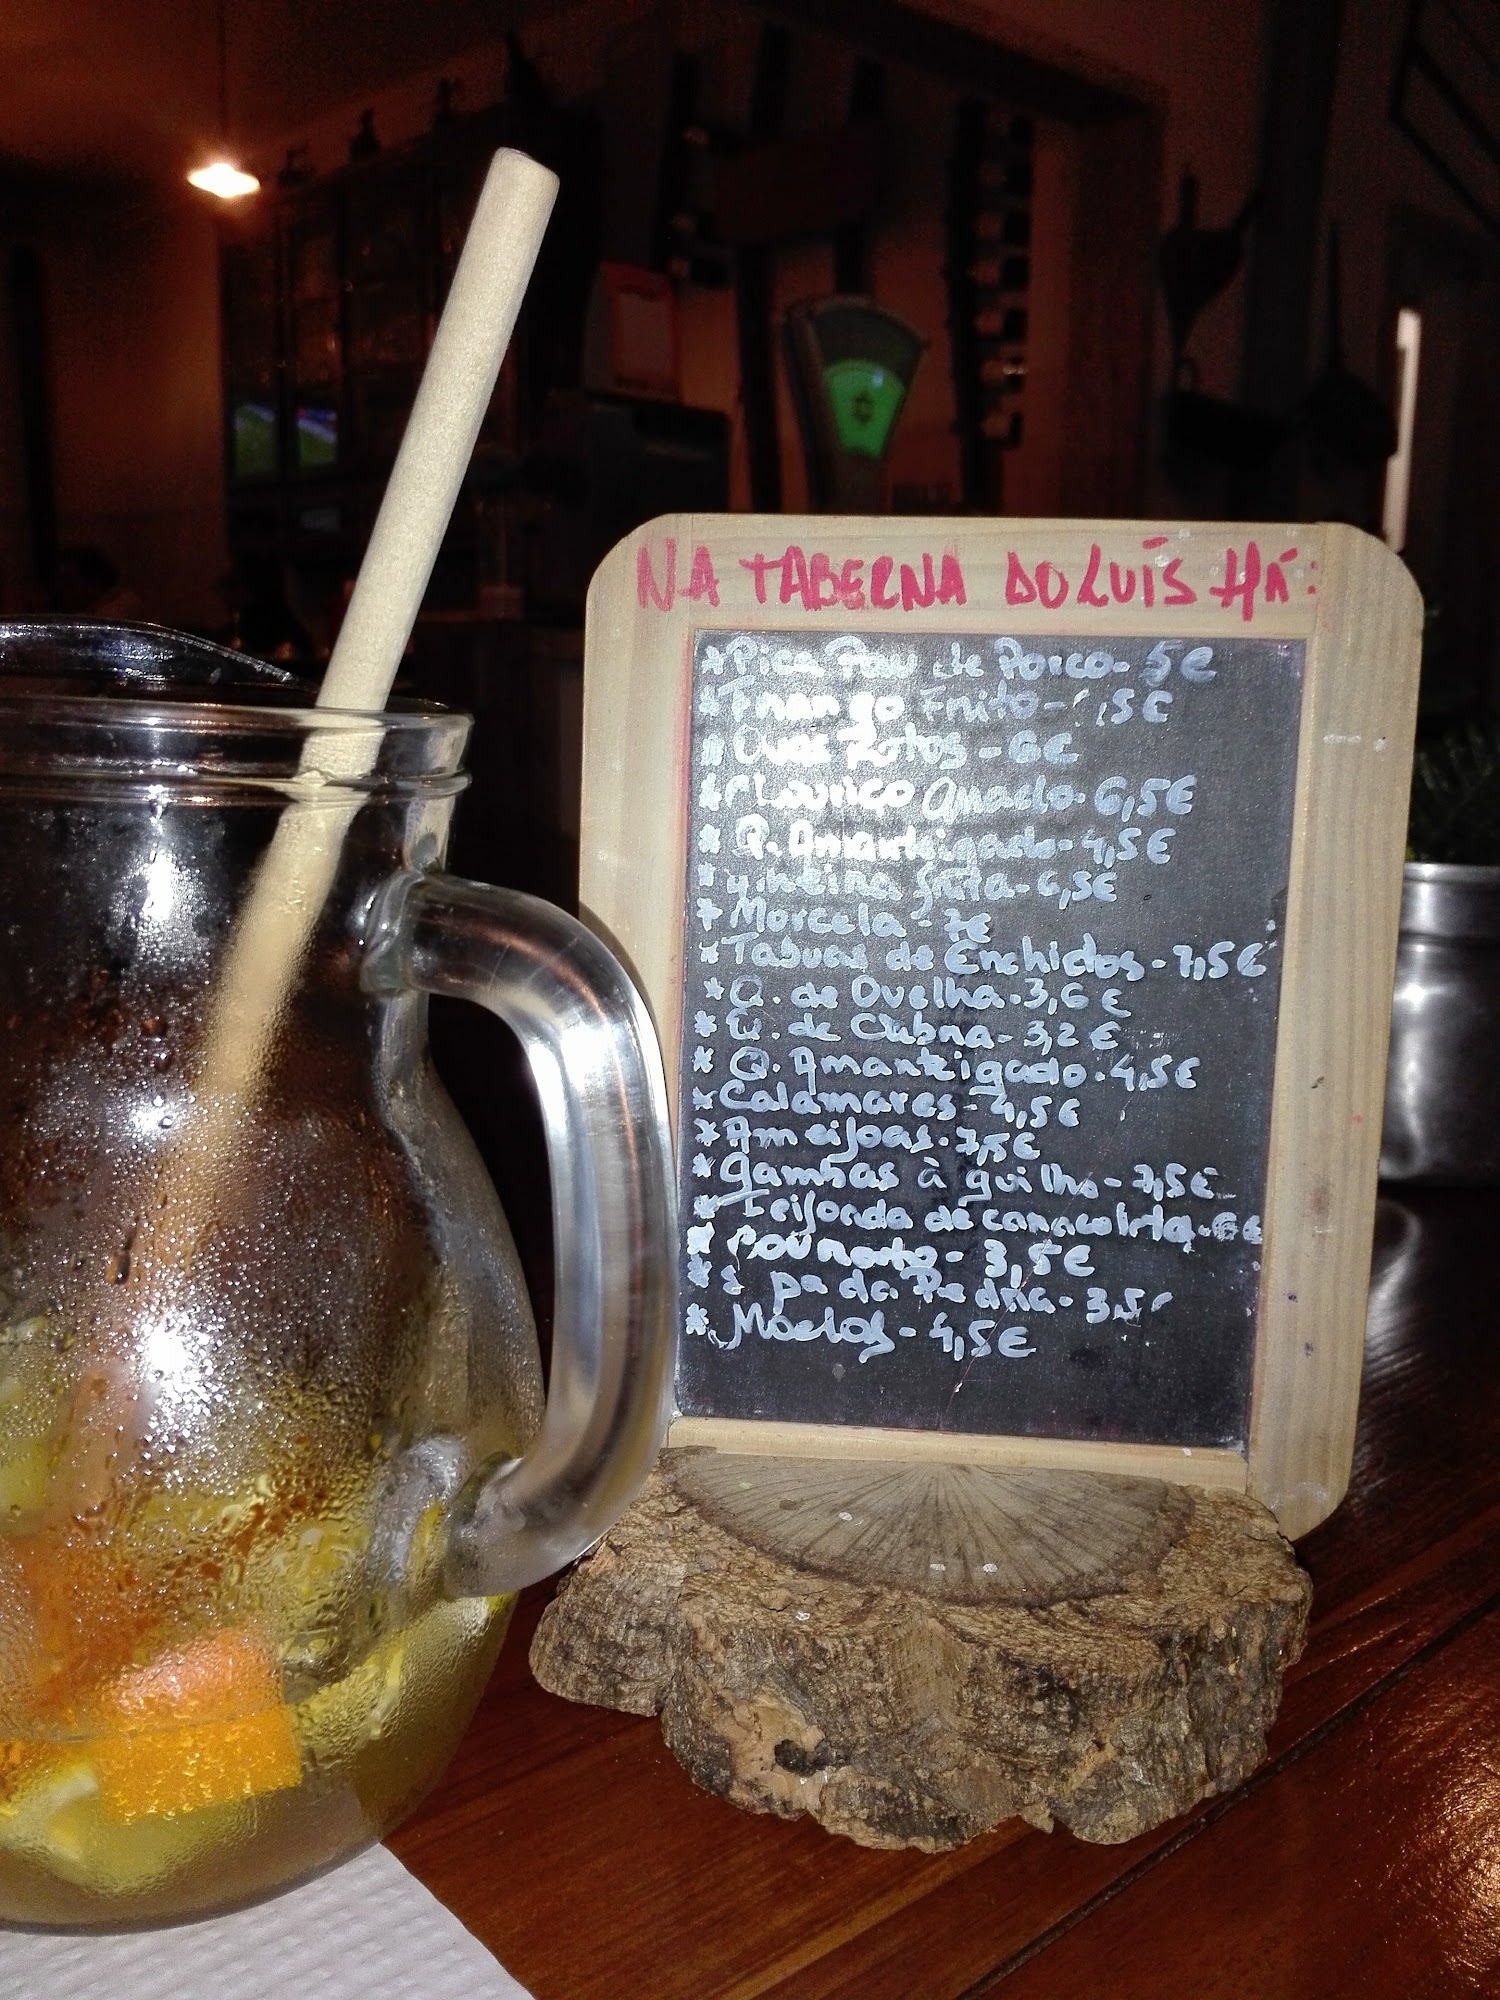 NA TABERNA DO LUÍS HÁ:
* Pica Pau de Porco - 5€
* Frango Frito - ,5€
* Ovos Rotos - 6€
* Assado - 6,5€
* Q. Amanteigado - 4,5€
* frita - 6,5€
* Morcela - 7€
* Tabuas de Enchidos - 7,5€
* Q. de Ovelha - 3,6€
* Q. de Cabra - 3,2€
* Q. Amanteigado - 4,5€
* Calamares - 4,5€
* Ameijoas - 7,5€
* gambas à guilho - 7,5€
* Feijoada de - 6€
* - 3,5€
* da Pedra - 3,5€
* Moelas - 4,5€